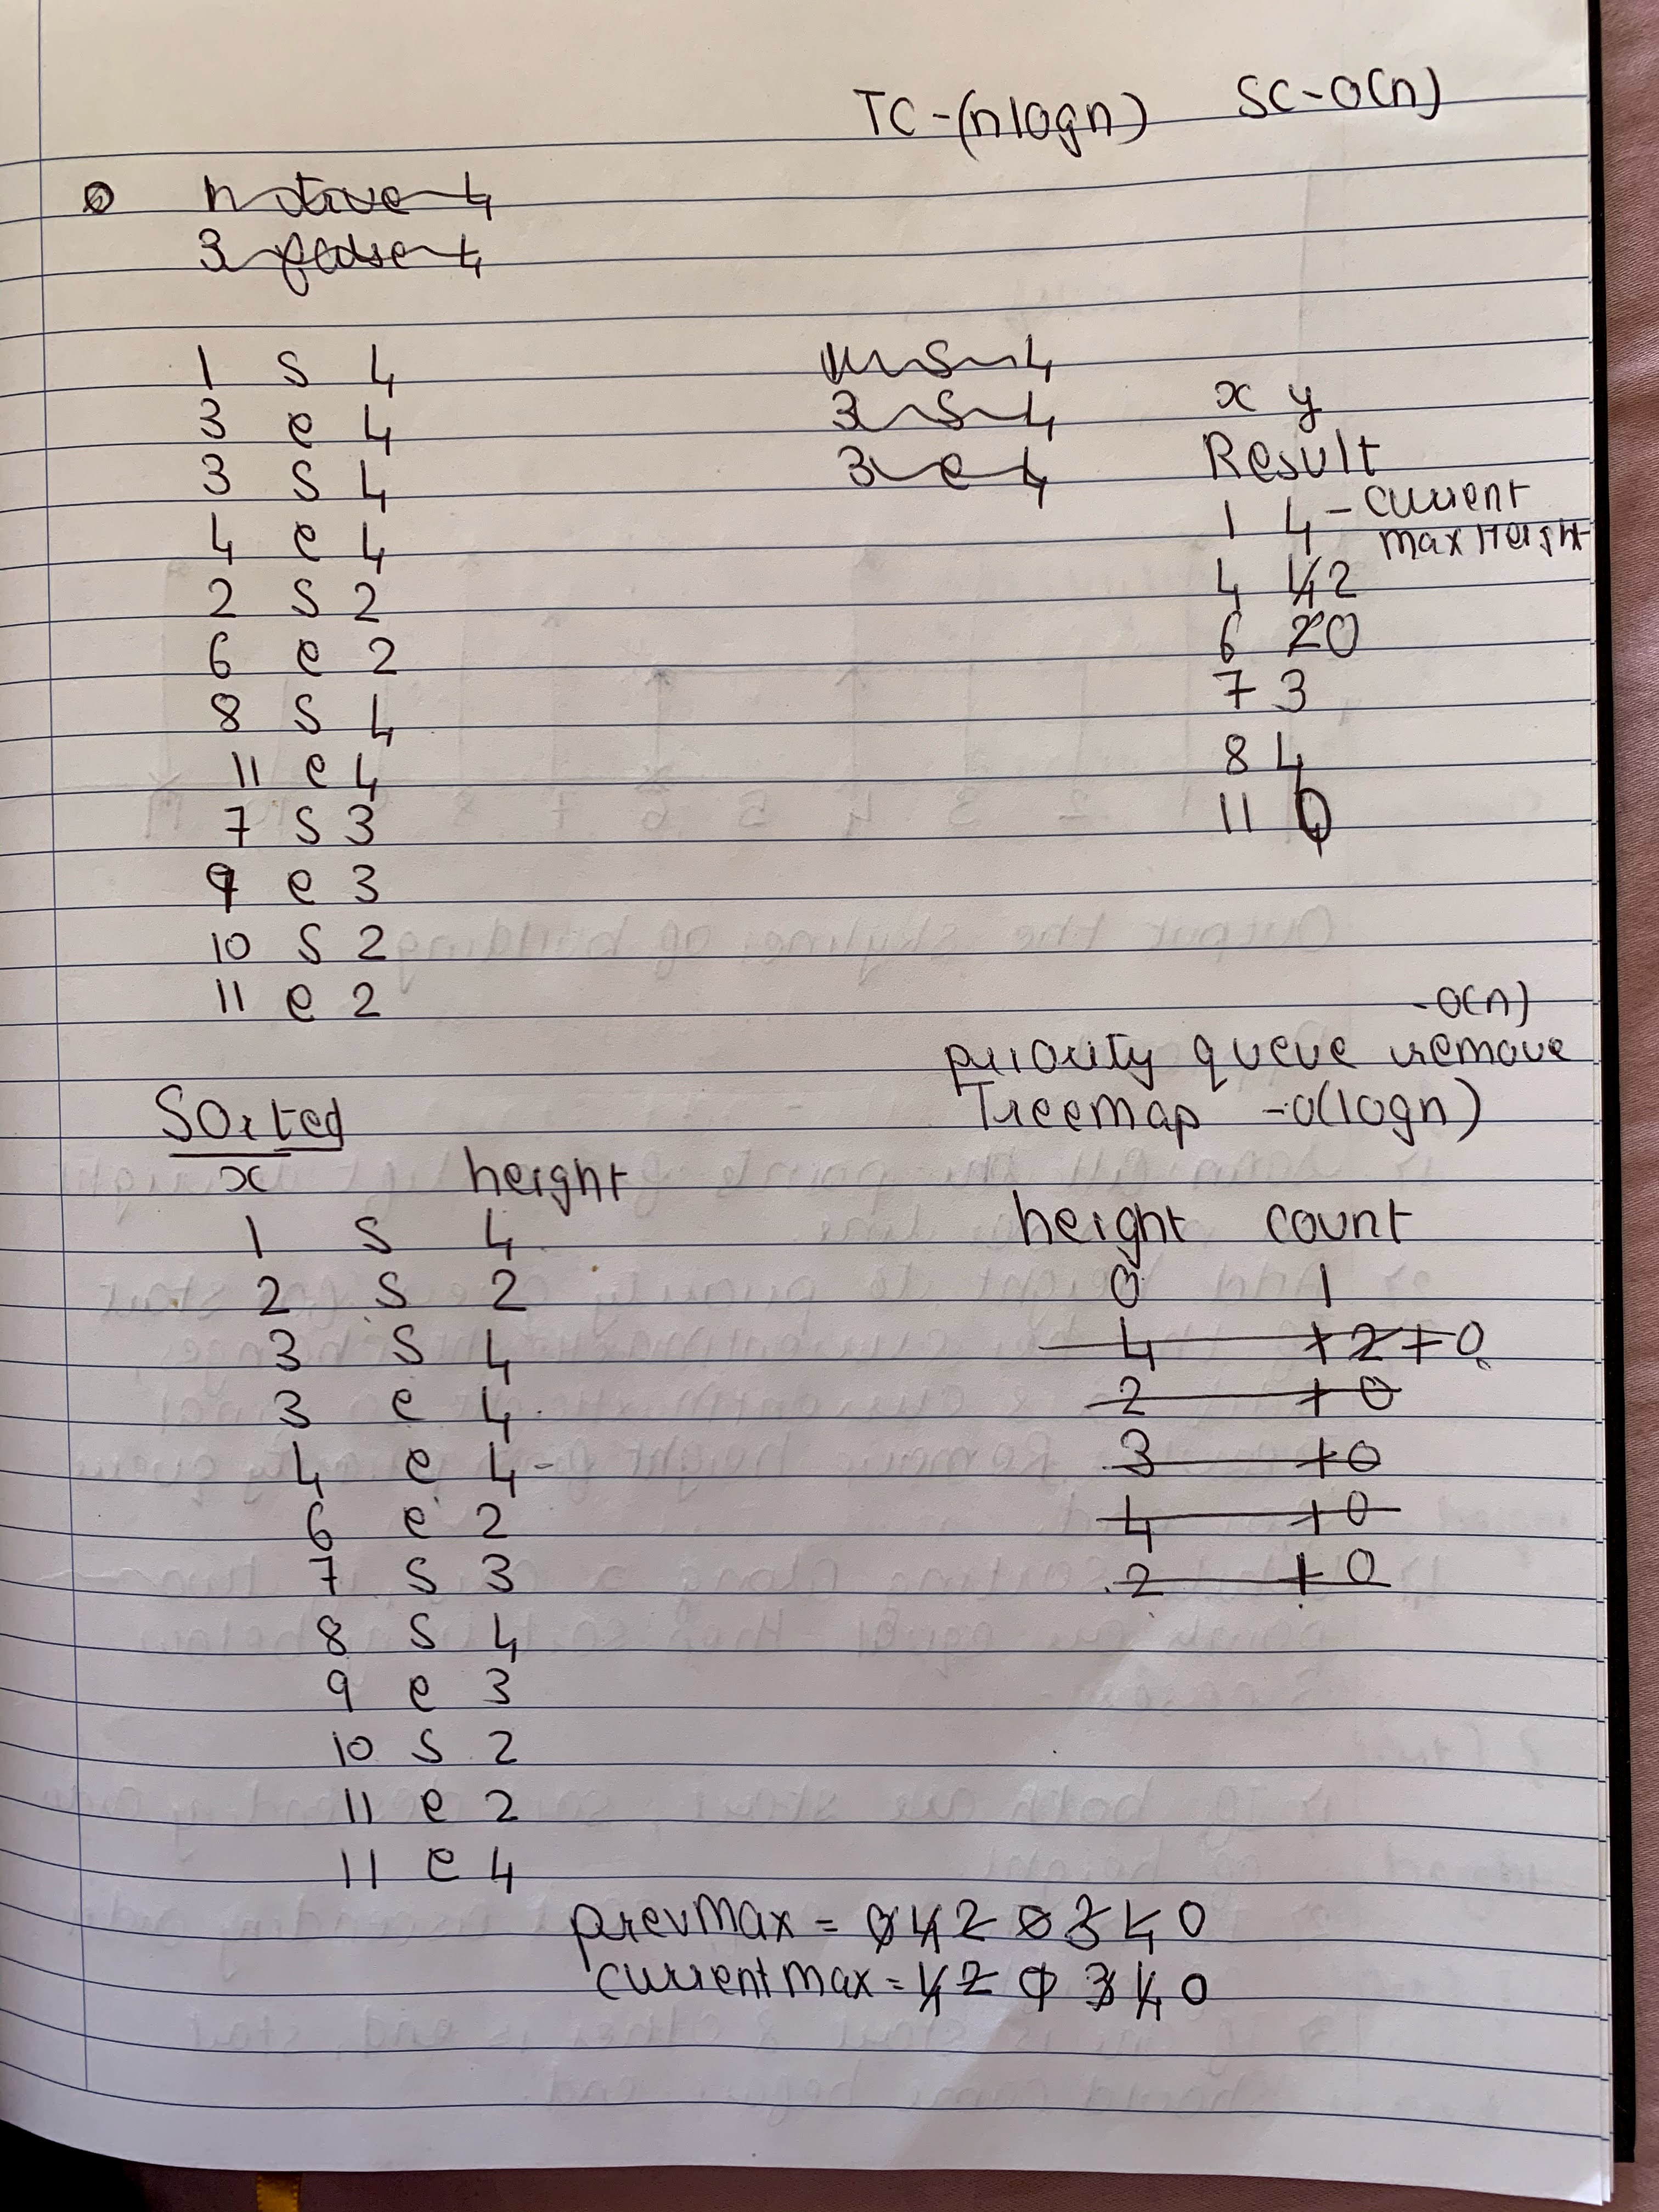 TC-(nlogn) SC-O(n)
3 false 4
1 s 4
3 e 4
3 s 4
4 e 4
2 s 2
6 e 2
8 s 4
11 e 4
7 s 3
9 e 3
10 s 2
11 e 2
s 4
3 s 4
3 e 4
x y
Result
1 4 - current
max Height
4 4 2
6 2 0
7 3
8 4
11 0
-O(n)
priority queue remove
Treemap -O(logn)
Sorted
x height
1 s 4
2 s 2
3 s 4
3 e 4
4 e 4 -
6 e 2
7 s 3
8 s 4
9 e 3
10 s 2
11 e 2
11 e 4
height count
0 1
4 1 2 1 0
2 1 0
3 1 0
4 1 0
2 1 0
prevMax = 0 4 2 0 3 4 0
currentmax = 4 2 0 3 4 0